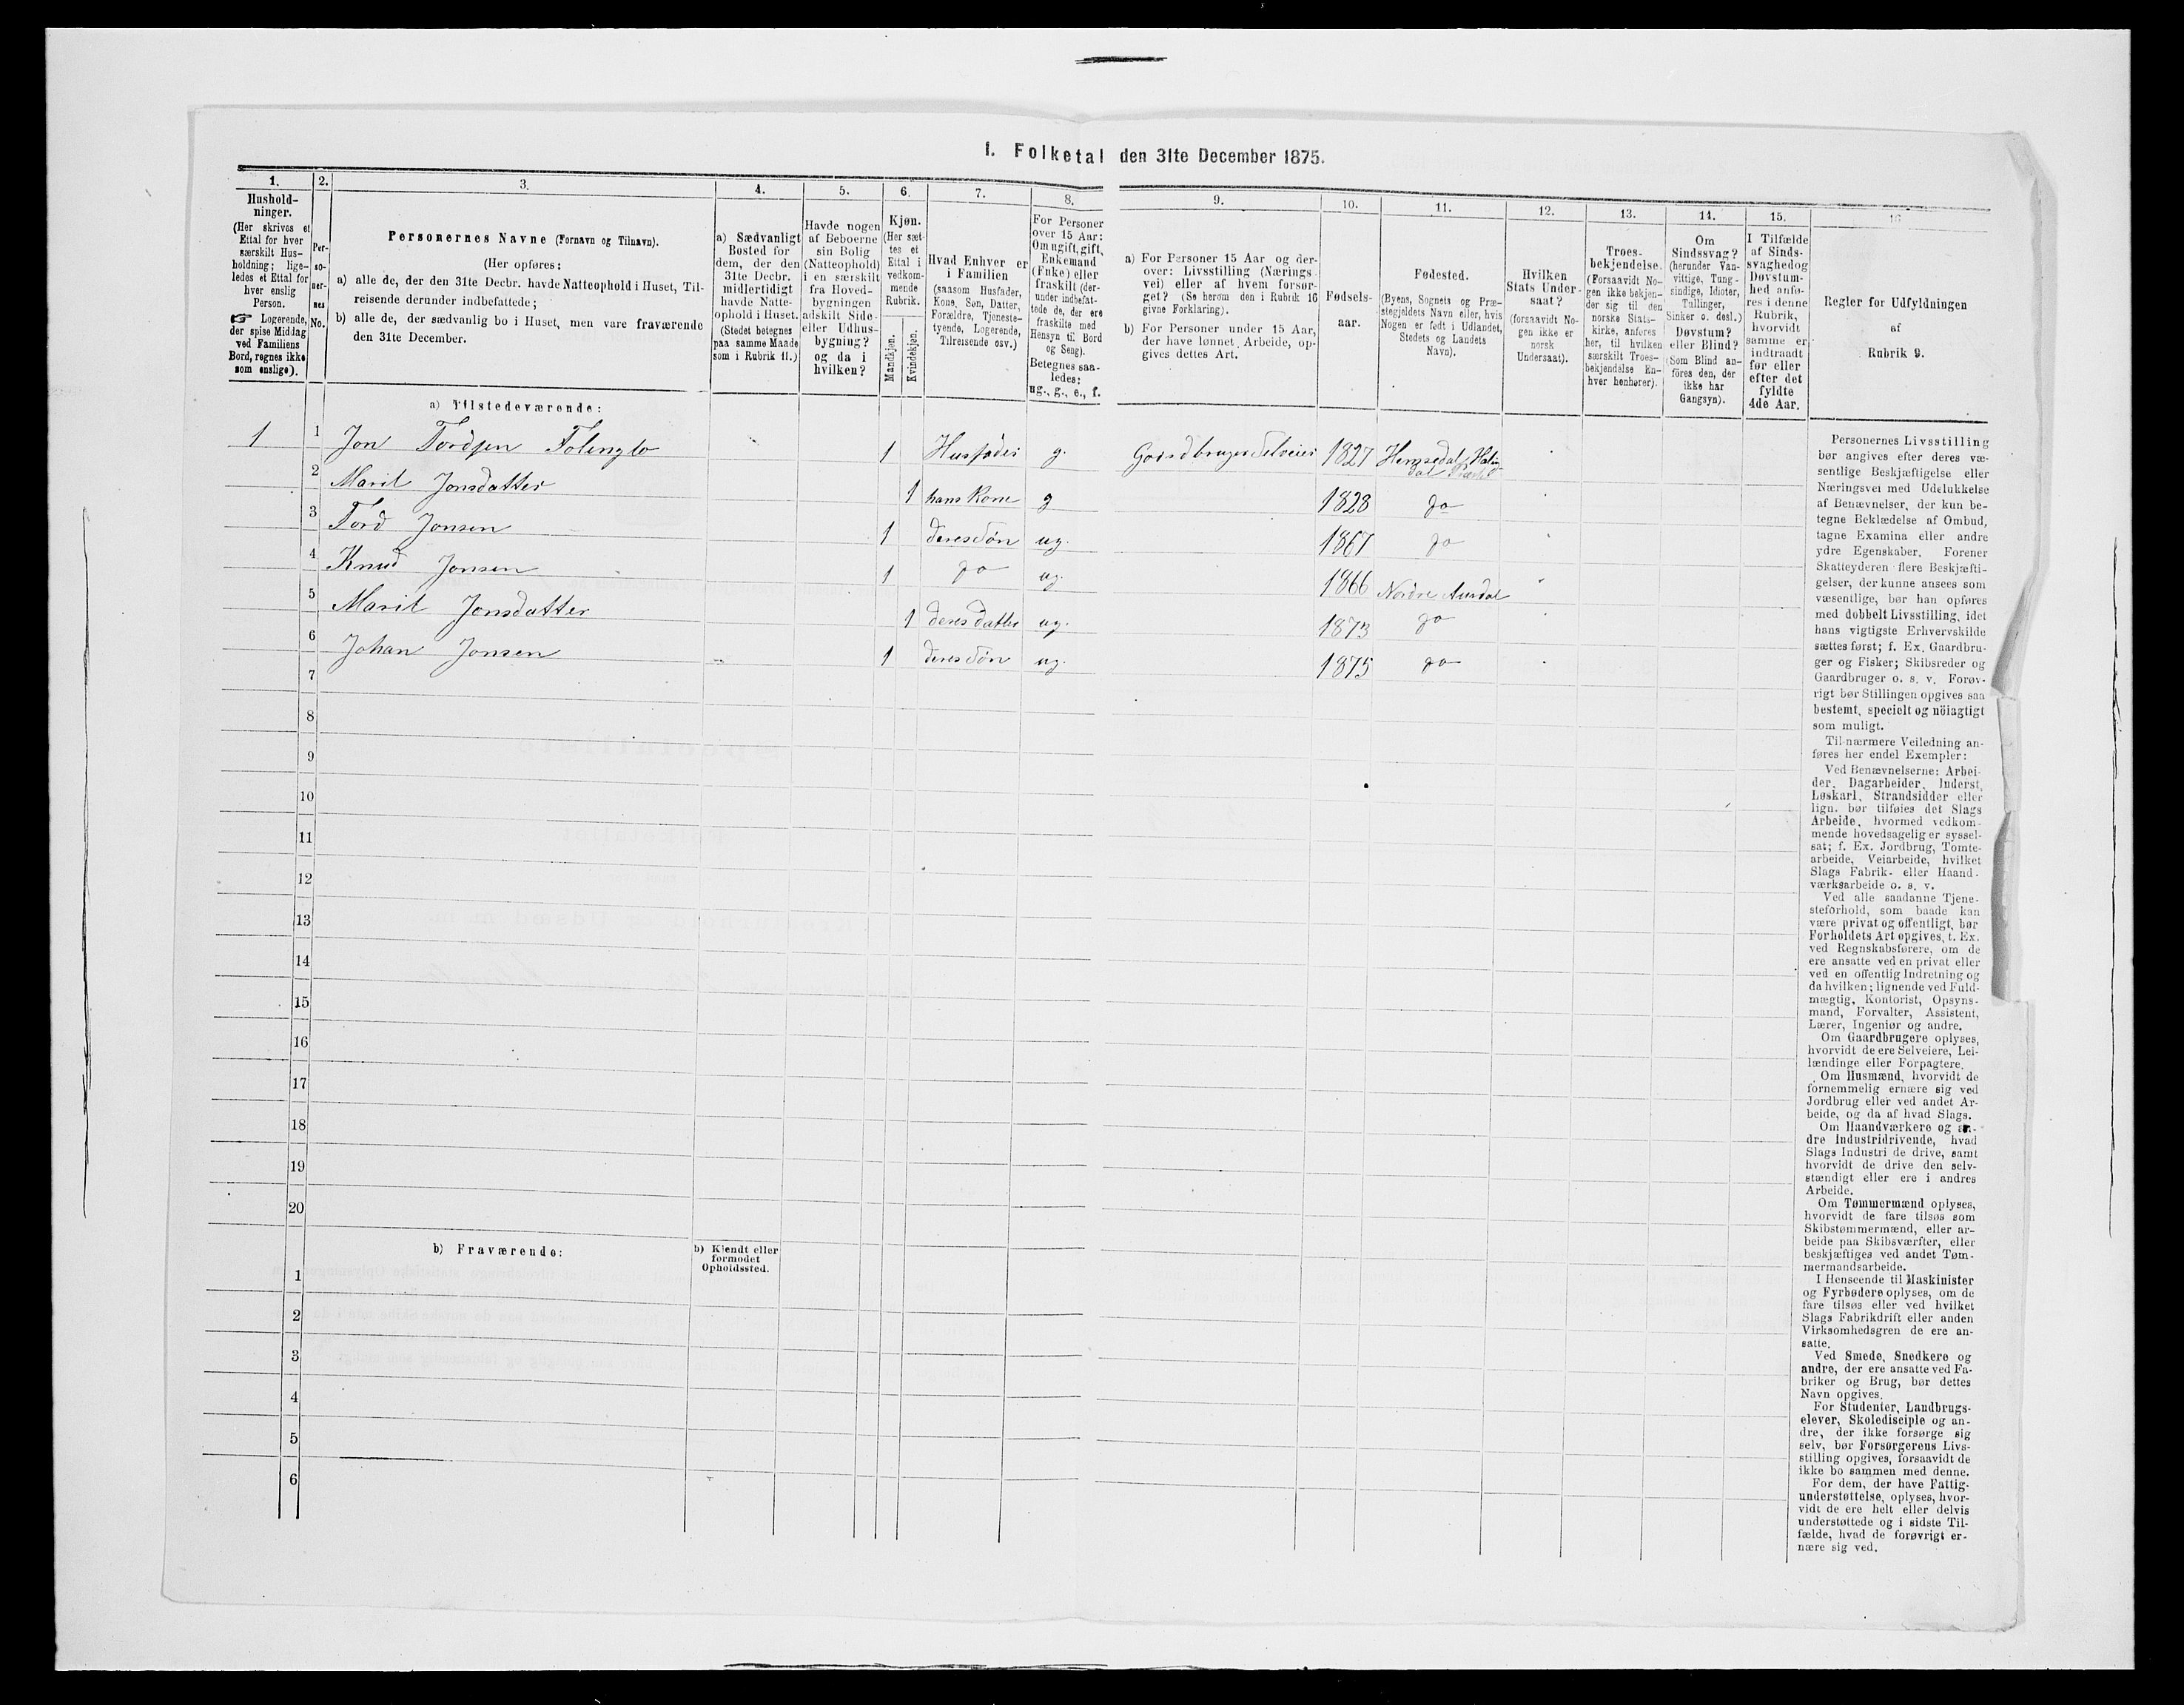 1. Folketal den 31te December 1875.
1.
Hushold-
ninger.
(Her skrives et
Ettal for hver
særskilt Hus-
holdning; lige-
ledes et Ettal for
hver enslig
Person.
☞ Logerende,
der spise Middag
ved Familiens
Bord, regnes ikke
som enslige).
2.
Per-
so-
ner-
nes
No.
3.
Personernes Navne (Fornavn og Tilnavn).
(Her opføres:
a) alle de, der den 31te Decbr. havde Natteophold i Huset, Til-
reisende derunder indbefattede;
b) alle de, der sædvanlig bo i Huset, men vare fraværende
den 31te December.
4.
a) Sædvanligt
Bosted for
dem, der den
31te Decbr.
midlertidigt
havde Natte-
ophold i Huset.
(Stedet betegnes
paa samme Maade
som i Rubrik 11.)
5.
Havde nogen
af Beboerne
sin Bolig
(Natteophold)
i en særskilt
fra Hoved-
bygningen
adskilt Side-
eller Udhus-
bygning?
og da i
hvilken?
6.
Kjøn.
(Her sæt-
tes et
Ettal i
vedkom-
mende
Rubrik.
Mandkjøn.
Kvindekjøn.
7.
Hvad Enhver er
i Familien
(saasom Husfader,
Kone, Søn, Datter,
Forældre, Tjeneste-
tyende, Logerende,
Tilreisende osv.)
8.
For Personer
over 15 Aar:
Om ugift, gift,
Enkemand
(Enke) eller
fraskilt (der-
under indbefat-
tede de, der ere
fraskilte med
Hensyn til Bord
og Seng).
Betegnes saa-
ledes:
ug., g., e., f.
9.
a) For Personer 15 Aar og der-
over: Livsstilling (Nærings-
vei) eller af hvem forsør-
get? (Se herom den i Rubrik 16
givne Forklaring).
b) For Personer under 15 Aar,
der have lønnet Arbeide, op-
gives dettes Art.
10.
Fødsels-
aar.
11.
Fødested.
(Byens, Sognets og Præ-
stegjeldets Navn eller, hvis
Nogen er født i Udlandet,
Stedets og Landets
Navn).
12.
Hvilken
Stats Under-
saat?
(forsaavidt No-
gen ikke er
norsk
Undersaat).
13.
Troes-
bekjendelse.
(Forsaavidt No-
gen ikke bekjen-
der sig til den
norske Stats-
kirke, anføres
her, til hvilken
særskilt Troes-
bekjendelse En-
hver henhører).
14.
Om
Sindssvag?
(herunder Van-
vittige, Tung-
sindige, Idioter,
Tullinger,
Sinker o. desl.)
Døvstum?
eller Blind?
(Som Blind an-
föres den, der
ikke har
Gangsyn).
15.
I Tilfælde
af Sinds-
svaghed og
Døvstum-
hed anfø-
res i denne
Rubrik,
hvorvidt
samme er
indtraadt
før eller
efter det
fyldte
4de Aar.
16
Regler for Udfyldningen
af
Rubrik 9.
a) Tilstedeværende:
1 1 Jon Tordsen Folenglo 1 Husfader g. Gaardbruger Selveier 1827 Hemsedal, Halin
dal Præstd
2 Marit Jonsdatter 1 hans Kone g 1828 do
3 Tord Jonsen 1 deres Søn ug. 1867 do
4 Knud Jonsen 1 do ug. 1866 Nordre Aurdal
5 Marit Jonsdatter 1 deres datter ug. 1873 do
6 Johan Jonsen 1 deres Søn ug. 1875 do
7
8
9
10
11
12
13
14
15
16
17
18
19
20
b) Fraværende:
b) Kjendt eller
formodet
Opholdssted.
1
2
3
4
5
6
Personernes Livsstilling
bør angives efter deres væ-
sentlige Beskjæftigelse eller
Næringsvei med Udelukkelse
af Benævnelser, der kun be-
tegne Beklædelse af Ombud,
tagne Examina eller andre
ydre Egenskaber. Forener
Skatteyderen flere Beskjæfti-
gelser, der kunne ansees som
væsentlige, bør han opføres
med dobbelt Livsstilling, idet
hans vigtigste Erhvervskilde
sættes først; f. Ex. Gaardbru-
ger og Fisker; Skibsreder og
Gaardbruger o. s. v. Forøv-
rigt bør Stillingen opgives saa
bestemt, specielt og nöiagtigt
som muligt.
Til nærmere Veiledning an-
føres her endel Exempler:
Ved Benævnelserne: Arbei-
der, Dagarbeider, Inderst,
Løskarl, Strandsidder eller
lign. bør tilføies det Slags
Arbeide, hvormed vedkom-
mende hovedsagelig er syssel-
sat; f. Ex. Jordbrug, Tomte-
arbeide, Veiarbeide, hvilket
Slags Fabrik- eller Haand-
værksarbeide o. s. v.
Ved alle saadanne Tjene-
steforhold, som baade kan
være privat og offentligt, bør
Forholdets Art opgives, t. Ex.
ved Regnskabsførere, om de
ere ansatte ved en privat eller
ved en offentlig Indretning og
da hvilken; lignende ved Fuld-
mægtig, Kontorist, Opsyns-
mand, Forvalter, Assistent,
Lærer, Ingeniør og andre.
Om Gaardbrugere oplyses,
hvorvidt de ere Selveiere, Lei-
lændinge eller Forpagtere.
Om Husmænd, hvorvidt de
fornemmelig ernære sig ved
Jordbrug eller ved andet Ar-
beide, og da af hvad Slags.
Om Haandværkere og an-
dre Industridrivende, hvad
Slags Industri de drive, samt
hvorvidt de drive den selv-
stændigt eller ere i andres
Arbeide.
Om Tømmermænd oplyses,
hvorvidt de fare tilsøs som
Skibstømmermænd, eller ar-
beide paa Skibsværfter, eller
beskjæftiges ved andet Tøm-
mermandsarbeide.
I Henseende til Maskinister
og Fyrbødere oplyses, om de
fare tilsøs eller ved hvilket
Slags Fabrikdrift eller anden
Virksomhedsgren de ere an-
satte.
Ved Smede, Snedkere og
andre, der ere ansatte ved Fa-
briker og Brug, bør dettes
Navn opgives.
For Studenter, Landbrugs-
elever, Skoledisciple og an-
dre, der ikke forsørge sig
selv, bør Forsørgerens Livs-
stilling opgives, forsaavidt de
ikke bo sammen med denne.
For dem, der have Fattig-
understøttelse, oplyses, hvor-
vidt de ere helt eller delvis
understøttede og i sidste Til-
fælde, hvad de forøvrigt er-
nære sig ved.